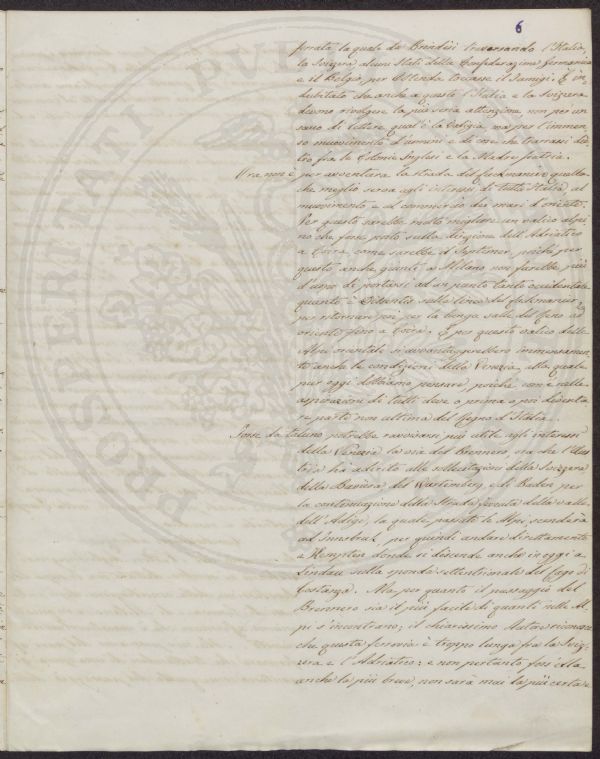 6
ferrata la quale da Brindisi traversando l'Italia,
la Svizzera, alcuni Stati della Confederazione germanica
e il Belgio, per Ostenda toccasse il Tamigi. È in
dubitato che anche a questo l'Italia e la Svizzera
devono rivolgere la più seria attenzione non per un
sacco di lettere qual'è la valigia, ma per l'immen
so muovimento d'uomini e di cose che trarrassi die
tro fra le Colonie Inglesi e la Madre patria.
Ora non è per avventura la strada del Luckmanier quella
che meglio serva agli interessi di tutta Italia, al
muovimento e al commercio dei mari d'oriente.
Per questo sarebbe molto migliore un valico alpi
no che fosse posto sulla direzione dell'Adriatico
a Coira, come sarebbe il Septimer, poichè per
questo anche quanti a Milano non farebbe più
d'uopo di portarsi ad un punto tanto occidentale
quanto è Disentis sulla linea del Luckmanier,
per ritornare poi per la lunga valle del Reno ad
oriente fino a Coira. E per questo valico delle
Alpi orientali si avvantaggierebbero immensamen
te anche le condizioni della Venezia, alla quale
pur oggi dobbiamo pensare, poichè com'è nelle
aspirazioni di tutti deve o prima o poi diventa
re parte non ultima del Regno d'Italia.
Forse da taluno potrebbe ravvisarsi più utile agli interessi
della Venezia la via del Brennero, ora che l'Aus
tria ha aderito alle sollecitazioni della Svizzera
della Baviera del Wurtemberg e di Baden per
la continuazione della strada ferrata della valle
dell'Adige, la quale, passate le Alpi, scenderà
ad Innsbruck per quindi andare direttamente
a Kempten donde si discende anche in oggi a
Lindau sulla sponda settentrionale del Lago di
Costanza. Ma per quanto il passaggio del
Brennero sia il più facile di quanti nelle Al
pi s'incontrano; il chiarissimo riconosce
che questa ferrovia è troppo lunga fra la Sviz
zera e l'Adriatico: e non pertanto fosse ella
anche la più breve, non sarà mai la più certa e
PROSPERITATI PUBL